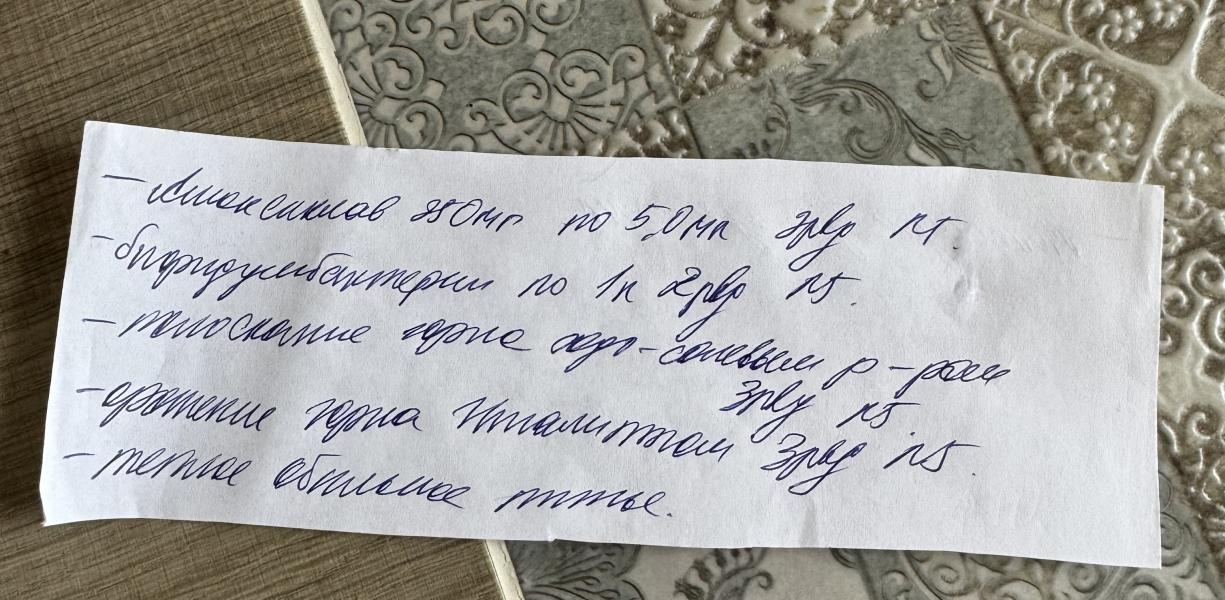 – Амоксиклав 250мг по 5,0мл 3р/д N7.
– бифидумбактерин по 1п 2р/д N5.
– полоскание горла содо-солевым р-ром
3р/д N5.
– орошение горла Ингалиптом 3р/д N5.
– теплое обильное питье.